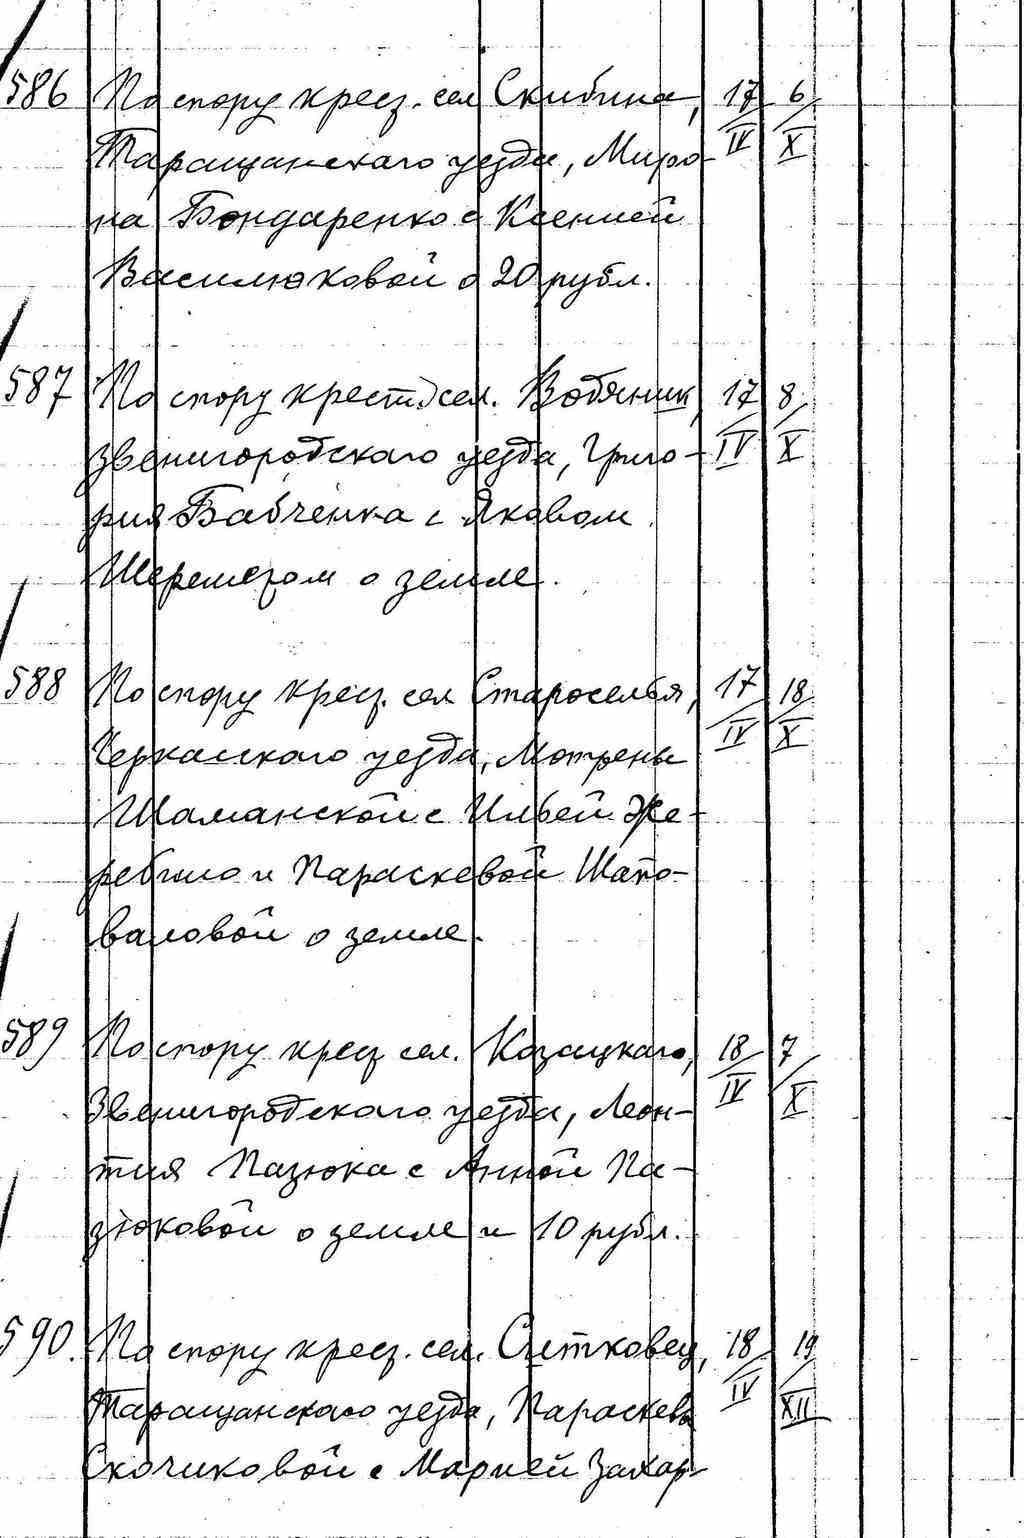 586 По спору крест. сел Скибина, 17/IV 6/X
Таращанского уезда, Миро-
на Бондаренко с Ксенией
Василюковой о 20 рубл.
587 По спору крест. сел. Водяник, 17/IV 8/X
Звенигородского уезда, Григо-
рия Бабченка с Яковом
Шереметом о земле.
588 По спору крест. сел Староселья, 17/IV 18/X
Черкасского уезда, Мотрены
Шаманской с Ильей Же-
ребило и Параскевой Шапо-
валовой о земле.
589 По спору крест сел. Козацкаго, 18/IV 7/X
Звенигородского уезда, Леон-
тия Пазюка с Анной Па-
зюковой о земле и 10 рубл.
590. По спору крест. сел. Ситковец, 18/IV 19/XII
Таращанского уезда, Параскевы
Скочиковой с Марией Захар-